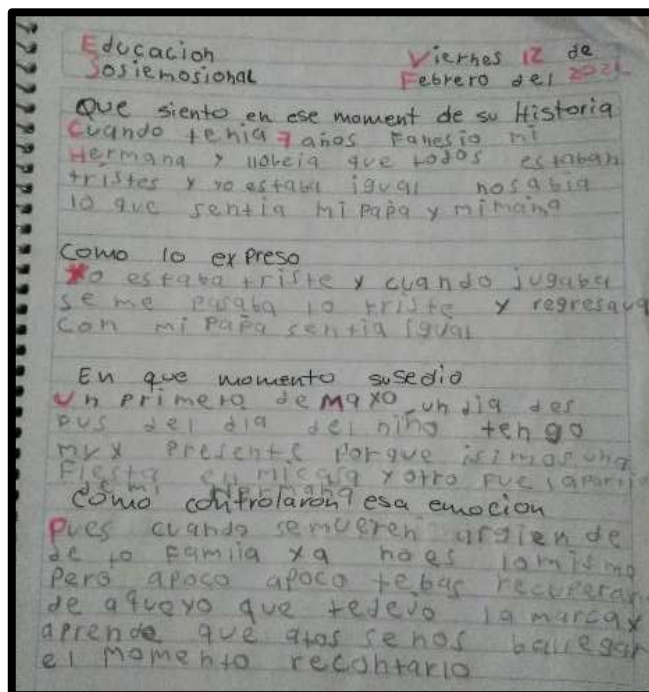 Educacion Viernes 12 de
Sosiemosional Febrero del 2021
Que siento en ese moment de su Historia
Cuando tenia 7 años Fanesio mi
Hermana y llobeia que todos estaban
tristes y yo estaba igual nosabia
lo que sentia mi papa y mimama
como lo expreso
Yo estaba triste y cuando jugaba
se me pasaba lo triste y regresava
con mi Papa sentia igual
En que momento susedio
Un Primero de Mayo un dia des
pus del dia del niño tengo
muy Presente Porque isimos una
Fiesta en micasa y otro fue lapartid
de mi Hermana
cómo controlaron esa emocion
Pues cuando semueren argien de
de to Famiia ya noes lomismo
Pero apoco apoco tebas recuperar
de aqueyo que tedevo la marcay
aprende que atos senos ballegar
el momento recontario